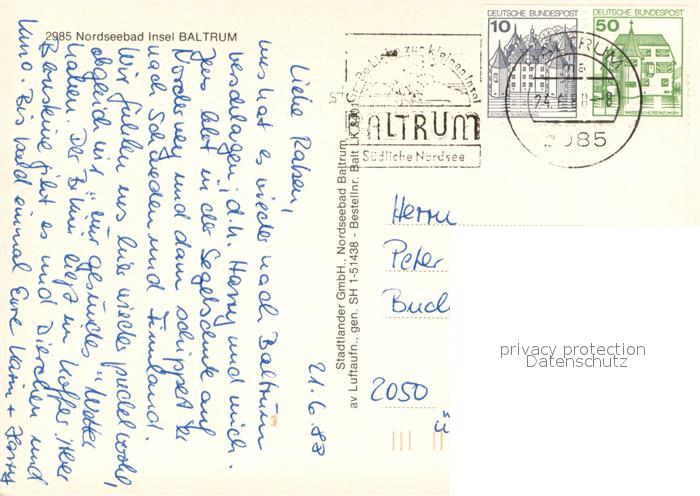 2985 Nordseebad Insel BALTRUM
21.6.88
Liebe Raben,
uns hat es wieder nach Baltrum
verschlagen, d.h. Harry und mich.
Jens lebt in der Segelschule auf
Norderney und dann schippert er
nach Schweden und Finnland.
Wir fühlen uns hier wieder pudelwohl,
obgleich wir "nur gesundes" Wetter
haben. Der Bikini liegt im Koffer. Aber
Bernsteine gibt es und Dierchen und
Kino. Bis bald einmal Eure Karin + Harry
Stadtlander GmbH., Nordseebad Baltrum
av Luftaufn., gen. SH 1-51438 - Bestellnr. Balt LK 8401
Große Liebe zur kleinen Insel
BALTRUM
Südliche Nordsee
DEUTSCHE BUNDESPOST
10
DEUTSCHE BUNDESPOST
50
WASSERSCHLOSS INZLINGEN
BALTRUM
2985
Herrn
Peter
2050
privacy protection
Datenschutz